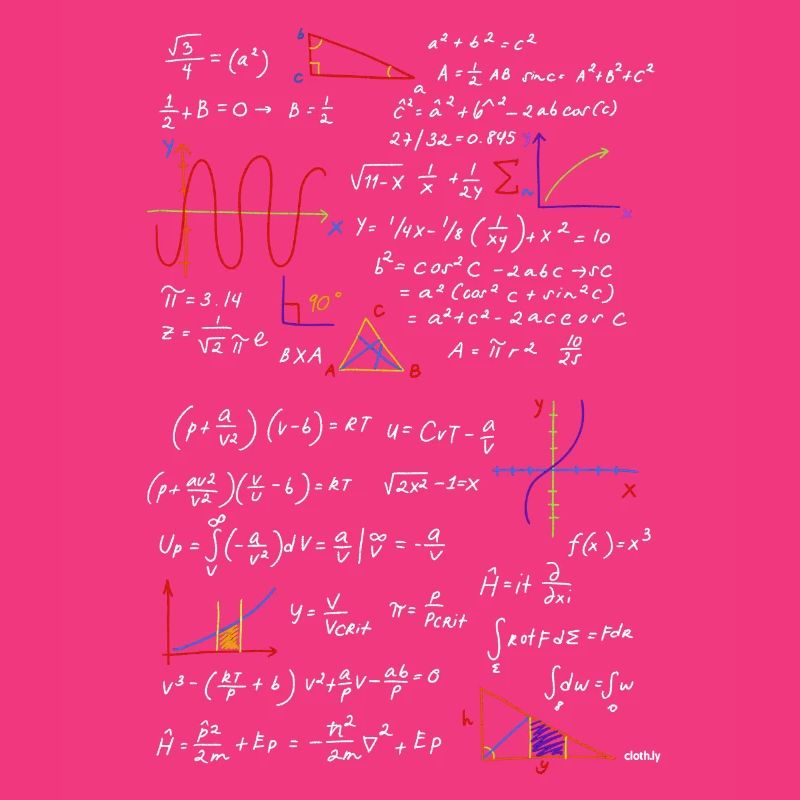 b
c
a
√3/4 = (a²)
a² + b² = c²
A = 1/2 AB sin c = A²+B²+C²
1/2 + B = 0 → B = 1/2
ĉ² = â² + b^² - 2ab cos(c)
27/32 = 0.845
y
x
√11-x 1/x + 1/2y Σ ~
y
x
Y = 1/4x - 1/8 (1/xy) + x² = 10
b² = cos² C - 2abc → sc
= a² (cos² c + sin² c)
= a² + c² - 2ac cos C
π = 3.14
90°
z = 1/√2π e
B X A
A
B
C
A = π r 2 10/25
(p + a/v2) (v - b) = RT
u = CvT - a/v
y
x
(p + av2/v2) (v/u - b) = RT
√2x² - 1 = x
f(x) = x³
Up = ∫∞v (-a/v²) dv = a/v |∞v = -a/v
Ĥ = it ∂/∂xi
y = V/VCRit
π = P/PCRit
∫Σ Rot F dΣ = FdR
v³ - (RT/p + b) v² + a/p v - ab/p = 0
∫8 dw = ∫0 w
Ĥ = p̂2/2m + Ep = -ħ²/2m ∇² + Ep
h
y
cloth.ly